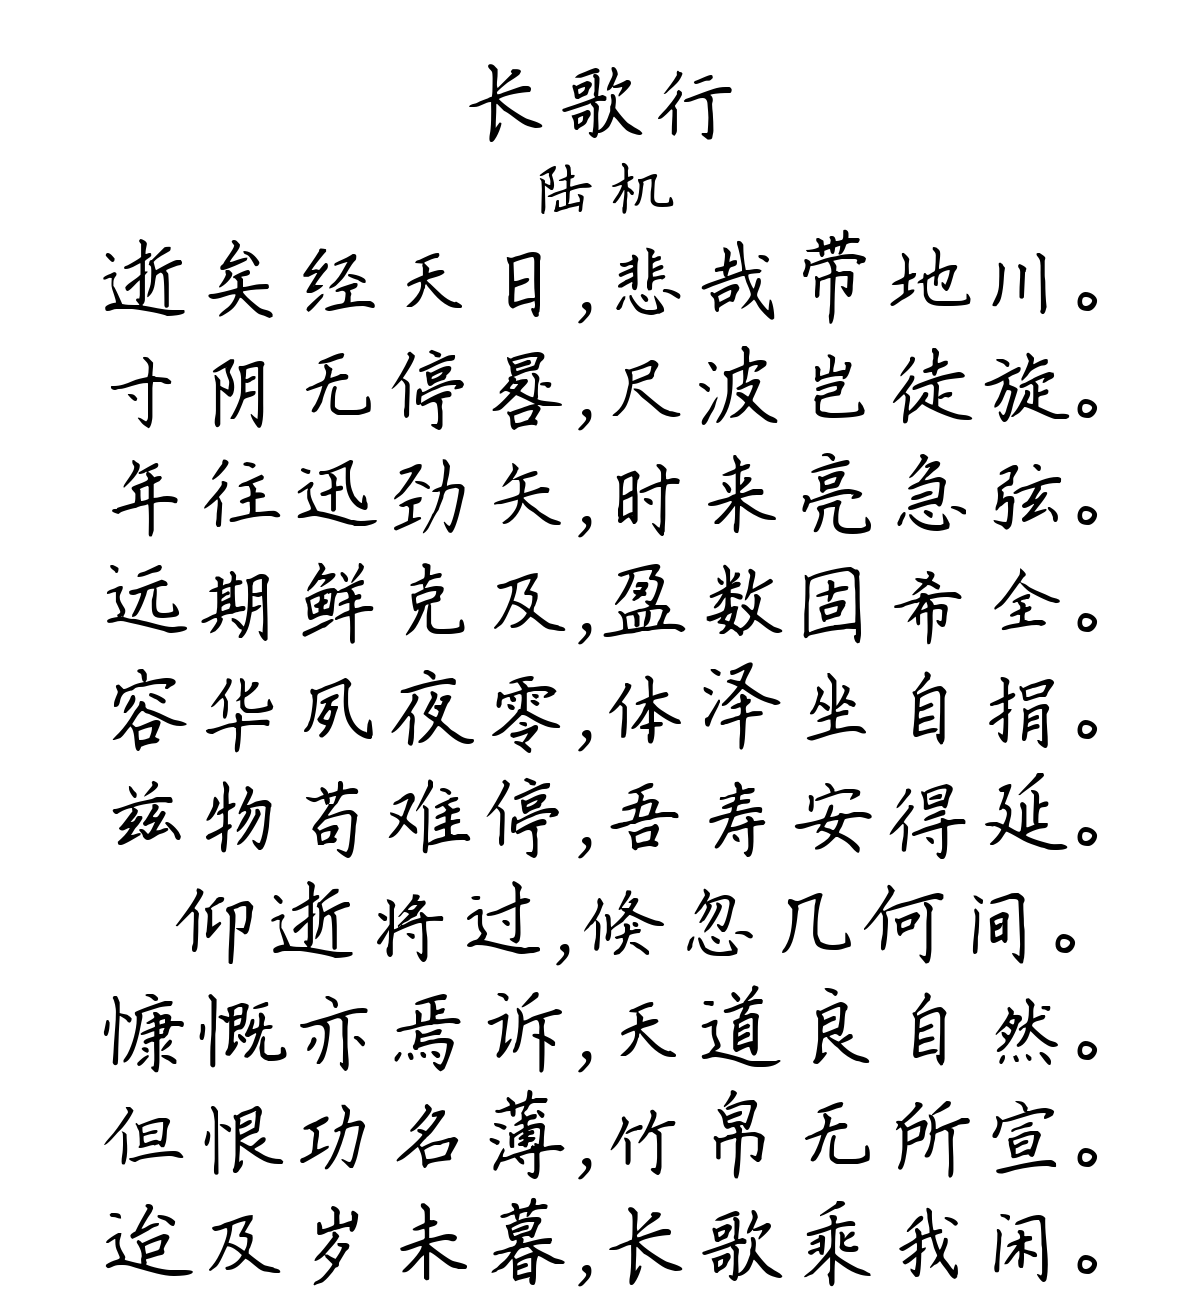 长歌行
陆机
逝矣经天日,悲哉带地川。
寸阴无停晷,尺波岂徒旋。
年往迅劲矢,时来亮急弦。
远期鲜克及,盈数固希全。
容华夙夜零,体泽坐自捐。
兹物苟难停,吾寿安得延。
仰逝将过,倏忽几何间。
慷慨亦焉诉,天道良自然。
但恨功名薄,竹帛无所宣。
迨及岁未暮,长歌乘我闲。